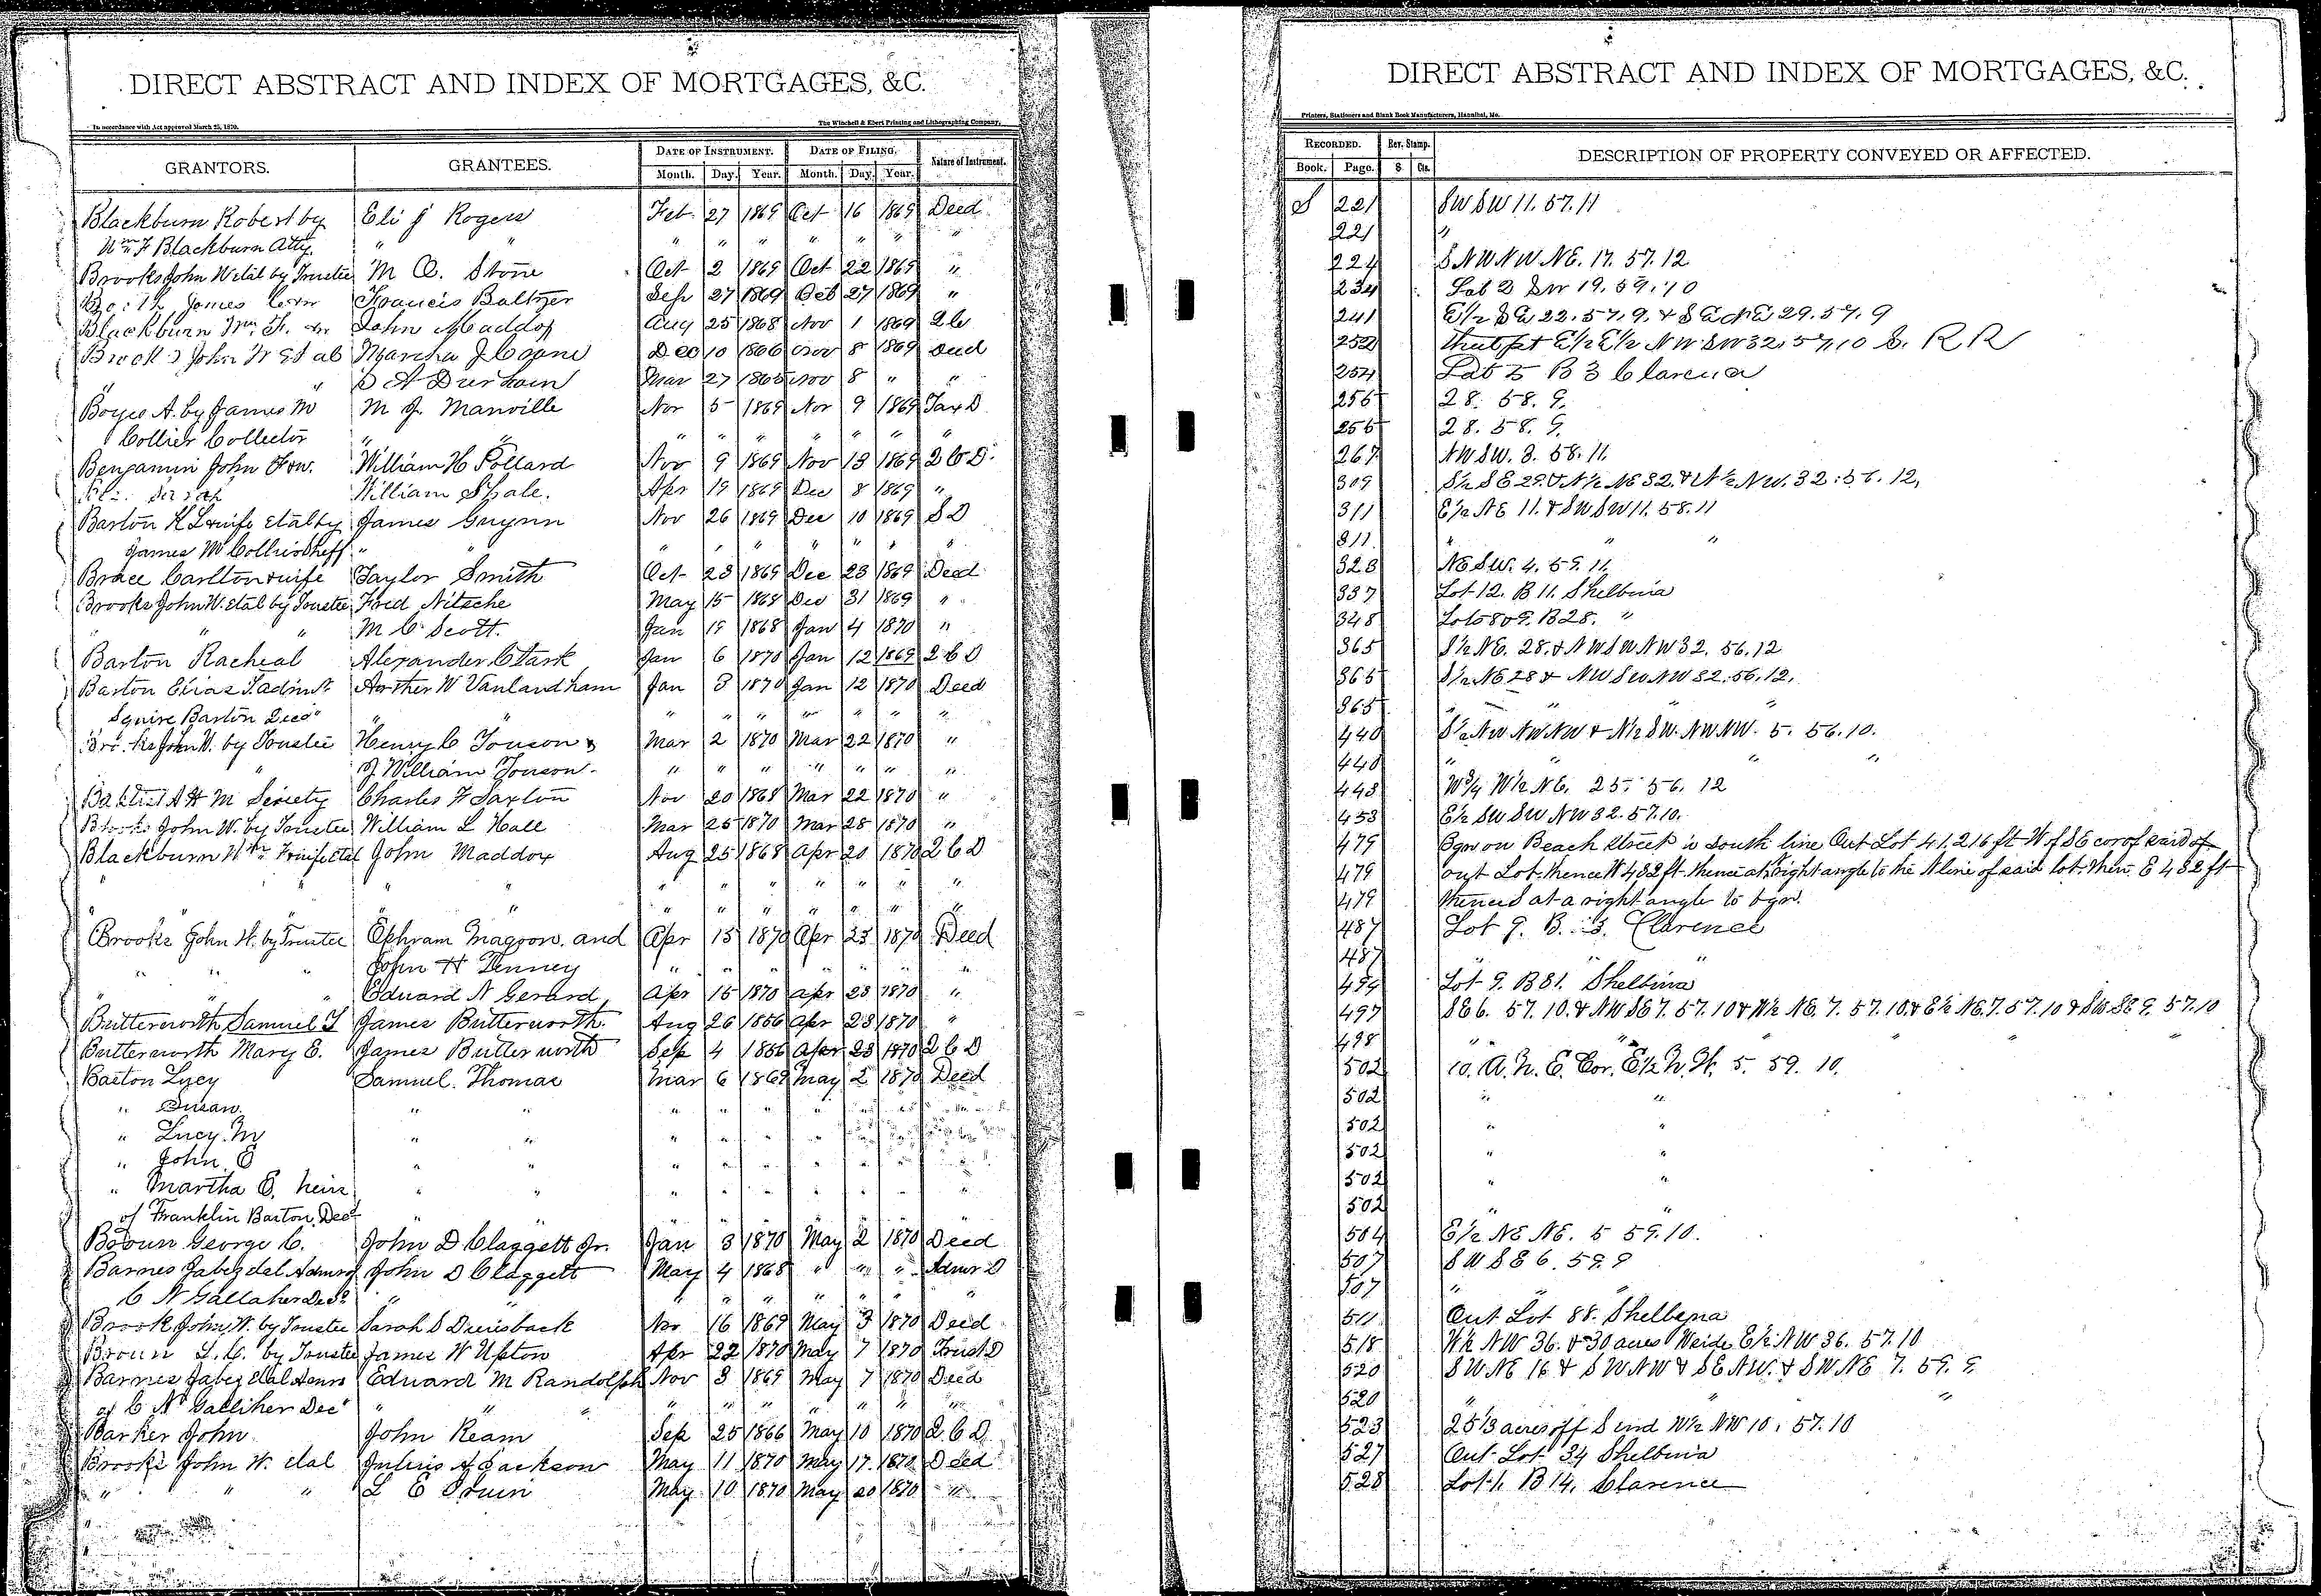 DIRECT ABSTRACT AND INDEX OF MORTGAGES, &C.
In accordance with Act approved March 25, 1870.
The Winchell & Ebert Printing and Lithographing Company,
GRANTORS. GRANTEES. DATE OF INSTRUMENT. DATE OF FILING. Nature of Instrument.
Month. Day. Year. Month. Day. Year.
Blackburn Robert by Eli J Rogers Feb. 27 1869 Oct 16 1869 Deed
Wm F Blackburn Atty. " " " " " " " " "
Brooks John W etal by Trustee M O. Stone Oct 2 1869 Oct 22 1869 "
James Francis Baltzer Sep 27 1869 27 1869 "
Blackburn Wm. F. John Maddox Aug 25 1868 Nov 1 1869
Brooks John W Et al Martha J Crane Dec 10 1866 Nov 8 1869 Deed
" " A Durham Mar 27 1865 Nov 8 " "
Boyce A. by James M M J. Manville Nov 5 1869 Nov 9 1869 Tax D
Collier Collector " " " " " " " " "
Benjamin John F. William H Pollard Nov 9 1869 Nov 13 1869 2 C D.
William Shale. Apr 19 1869 Dec 8 1869 "
Barton K L & wife etal by James Gwynn Nov 26 1869 Dec 10 1869 S D
James M Collier Sheff " " " " " " " " "
Brace Carlton & wife Taylor Smith Oct 23 1869 Dec 23 1869 Deed
Brooks John W. etal by Trustee Fred Nitsche May 15 1868 Dec 31 1869 "
" " " M C Scott. Jan 19 1868 Jan 4 1870 "
Barton Racheal Alexander Clark Jan 6 1870 Jan 12 1869 2 C D
Barton Elias T admr Arther W Vanlandham Jan 3 1870 Jan 12 1870 Deed
Squire Barton Decd " " " " " " " " "
John W. by Trustee Henry C Touson & Mar 2 1870 Mar 22 1870 "
" J William Touson " " " " " " "
Baptist A H M Society Charles F Saxton Nov 20 1868 Mar 22 1870 "
Brooks John W. by Trustee William L Hall Mar 25 1870 Mar 28 1870 "
Blackburn Wm F wife etal John Maddox Aug 25 1868 Apr 20 1870 2 C D
" " " " " " " " " " "
" " " " " " " " " "
Brooks John W. by Trustee Ephram Magoon. and Apr 15 1870 Apr 23 1870 Deed
" " " John H Tenney " " " " " " "
" " " Edward N Gerard Apr 15 1870 Apr 23 1870 "
Butterworth Samuel T James Butterworth. Aug 26 1856 Apr 23 1870 "
Butterworth Mary E. James Butterworth Sep 4 1856 Apr 23 1870 2 C D
Barton Lucy Samuel. Thomas Mar 6 1869 May 2 1870 Deed
" Susan. " " " " " " " "
" Lucy. M " " " " " " " "
" John. E " " " " " " " " "
" Martha E. heirs " " " " " " " " "
of Franklin Barton, Decd " " " " " " " " "
Brown George C. John D Claggett Jr. Jan 3 1870 May 2 1870 Deed
Barnes Jabez etal Admr of John D Claggett May 4 1868 " " " Admr D
C N Gallaher Decd " " " " " " " " "
Brook John W. by Trustee Sarah S Dreisback Nov 16 1869 May 3 1870 Deed
Brown by Trustee James W Upton Apr 22 1870 May 7 1870 Trust D
Barnes Jabez Etal Admrs Edward M Randolph Nov 3 1869 May 7 1870 Deed
of C N Galliher Decd " " " " " " " " "
Barker John John Ream Sep 25 1866 May 10 1870 2 C D
Brooks John W. etal Julius A Jackson May 11 1870 May 17 1870 Deed
" " " L E May 10 1870 May 20 1870 "
DIRECT ABSTRACT AND INDEX OF MORTGAGES, &C.
Printers, Stationers and Blank Book Manufacturers, Hannibal, Mo.
RECORDED. Rev. Stamp. DESCRIPTION OF PROPERTY CONVEYED OR AFFECTED.
Book. Page. $ Cts.
S 221 SW SW 11. 57. 11
221 "
224 S NW NW NE. 17. 57. 12
234 19. 59. 10
241 E 1/2 S E 22. 57. 9. & S E N E 29. 57. 9
252 that pt E 1/2 E 1/2 NW SW 32. 57. 10 S. R R
254 Lot 5 B 3 Clarence
256 28. 58. 9.
256 28. 58. 9.
267 NW SW. 3. 58. 11.
309 S 1/2 S E 29. & N 1/2 NE 32. & N 1/2 NW. 32. 56. 12,
311 E 1/2 NE 11. & SW SW 11. 58. 11
311 " " "
323 NE SW. 4. 59. 11.
337 Lot 12. B 11. Shelbina
348 Lots 8 & 9. B 28. "
365 S 1/2 NE. 28. & NW SW NW 32. 56. 12
365 S 1/2 NE 28 & NW SW NW 32. 56. 12.
365 " " "
440 S 1/2 NW NW NW & N 1/2 SW. NW NW. 5. 56. 10.
440 " " " "
443 W 3/4 W 1/2 NE. 25. 56. 12
453 E 1/2 SW SW NW 32. 57. 10.
479 Bgn on Beach street is south line Out Lot 41. 216 ft W of SE cor of said
479 out Lot thence W 432 ft. thence at right angle to the N line of said lot. then E 432 ft
479 thence S at a right angle to bgn.
487 Lot 9. B. 3. Clarence
487 " " "
494 Lot 9. B 31. Shelbina
497 SE 6. 57. 10. & NW SE 7. 57. 10 & W 1/2 NE. 7. 57. 10. & E 1/2 NE. 7. 57. 10 & SW SE 9. 57. 10
498 " " " " "
502 10. A. N. E. Cor. E 1/2 N. W. 5. 59. 10.
502 " "
502 " "
502 " "
502 " "
502 " "
504 E 1/2 NE NE. 5 59. 10.
507 SW SE 6. 59. 9
507 " " "
511 Out Lot 88. Shelbyna
518 W 1/2 NW 36. & 30 acres W side E 1/2 NW 36. 57. 10
520 SW NE 16 & SW NW & SE NW. & SW NE 7. 59. 9
520 " " "
523 25 1/3 acres off S end W 1/2 NW 10. 57. 10
527 Out Lot 34 Shelbina
528 Lot 1. B 14. Clarence